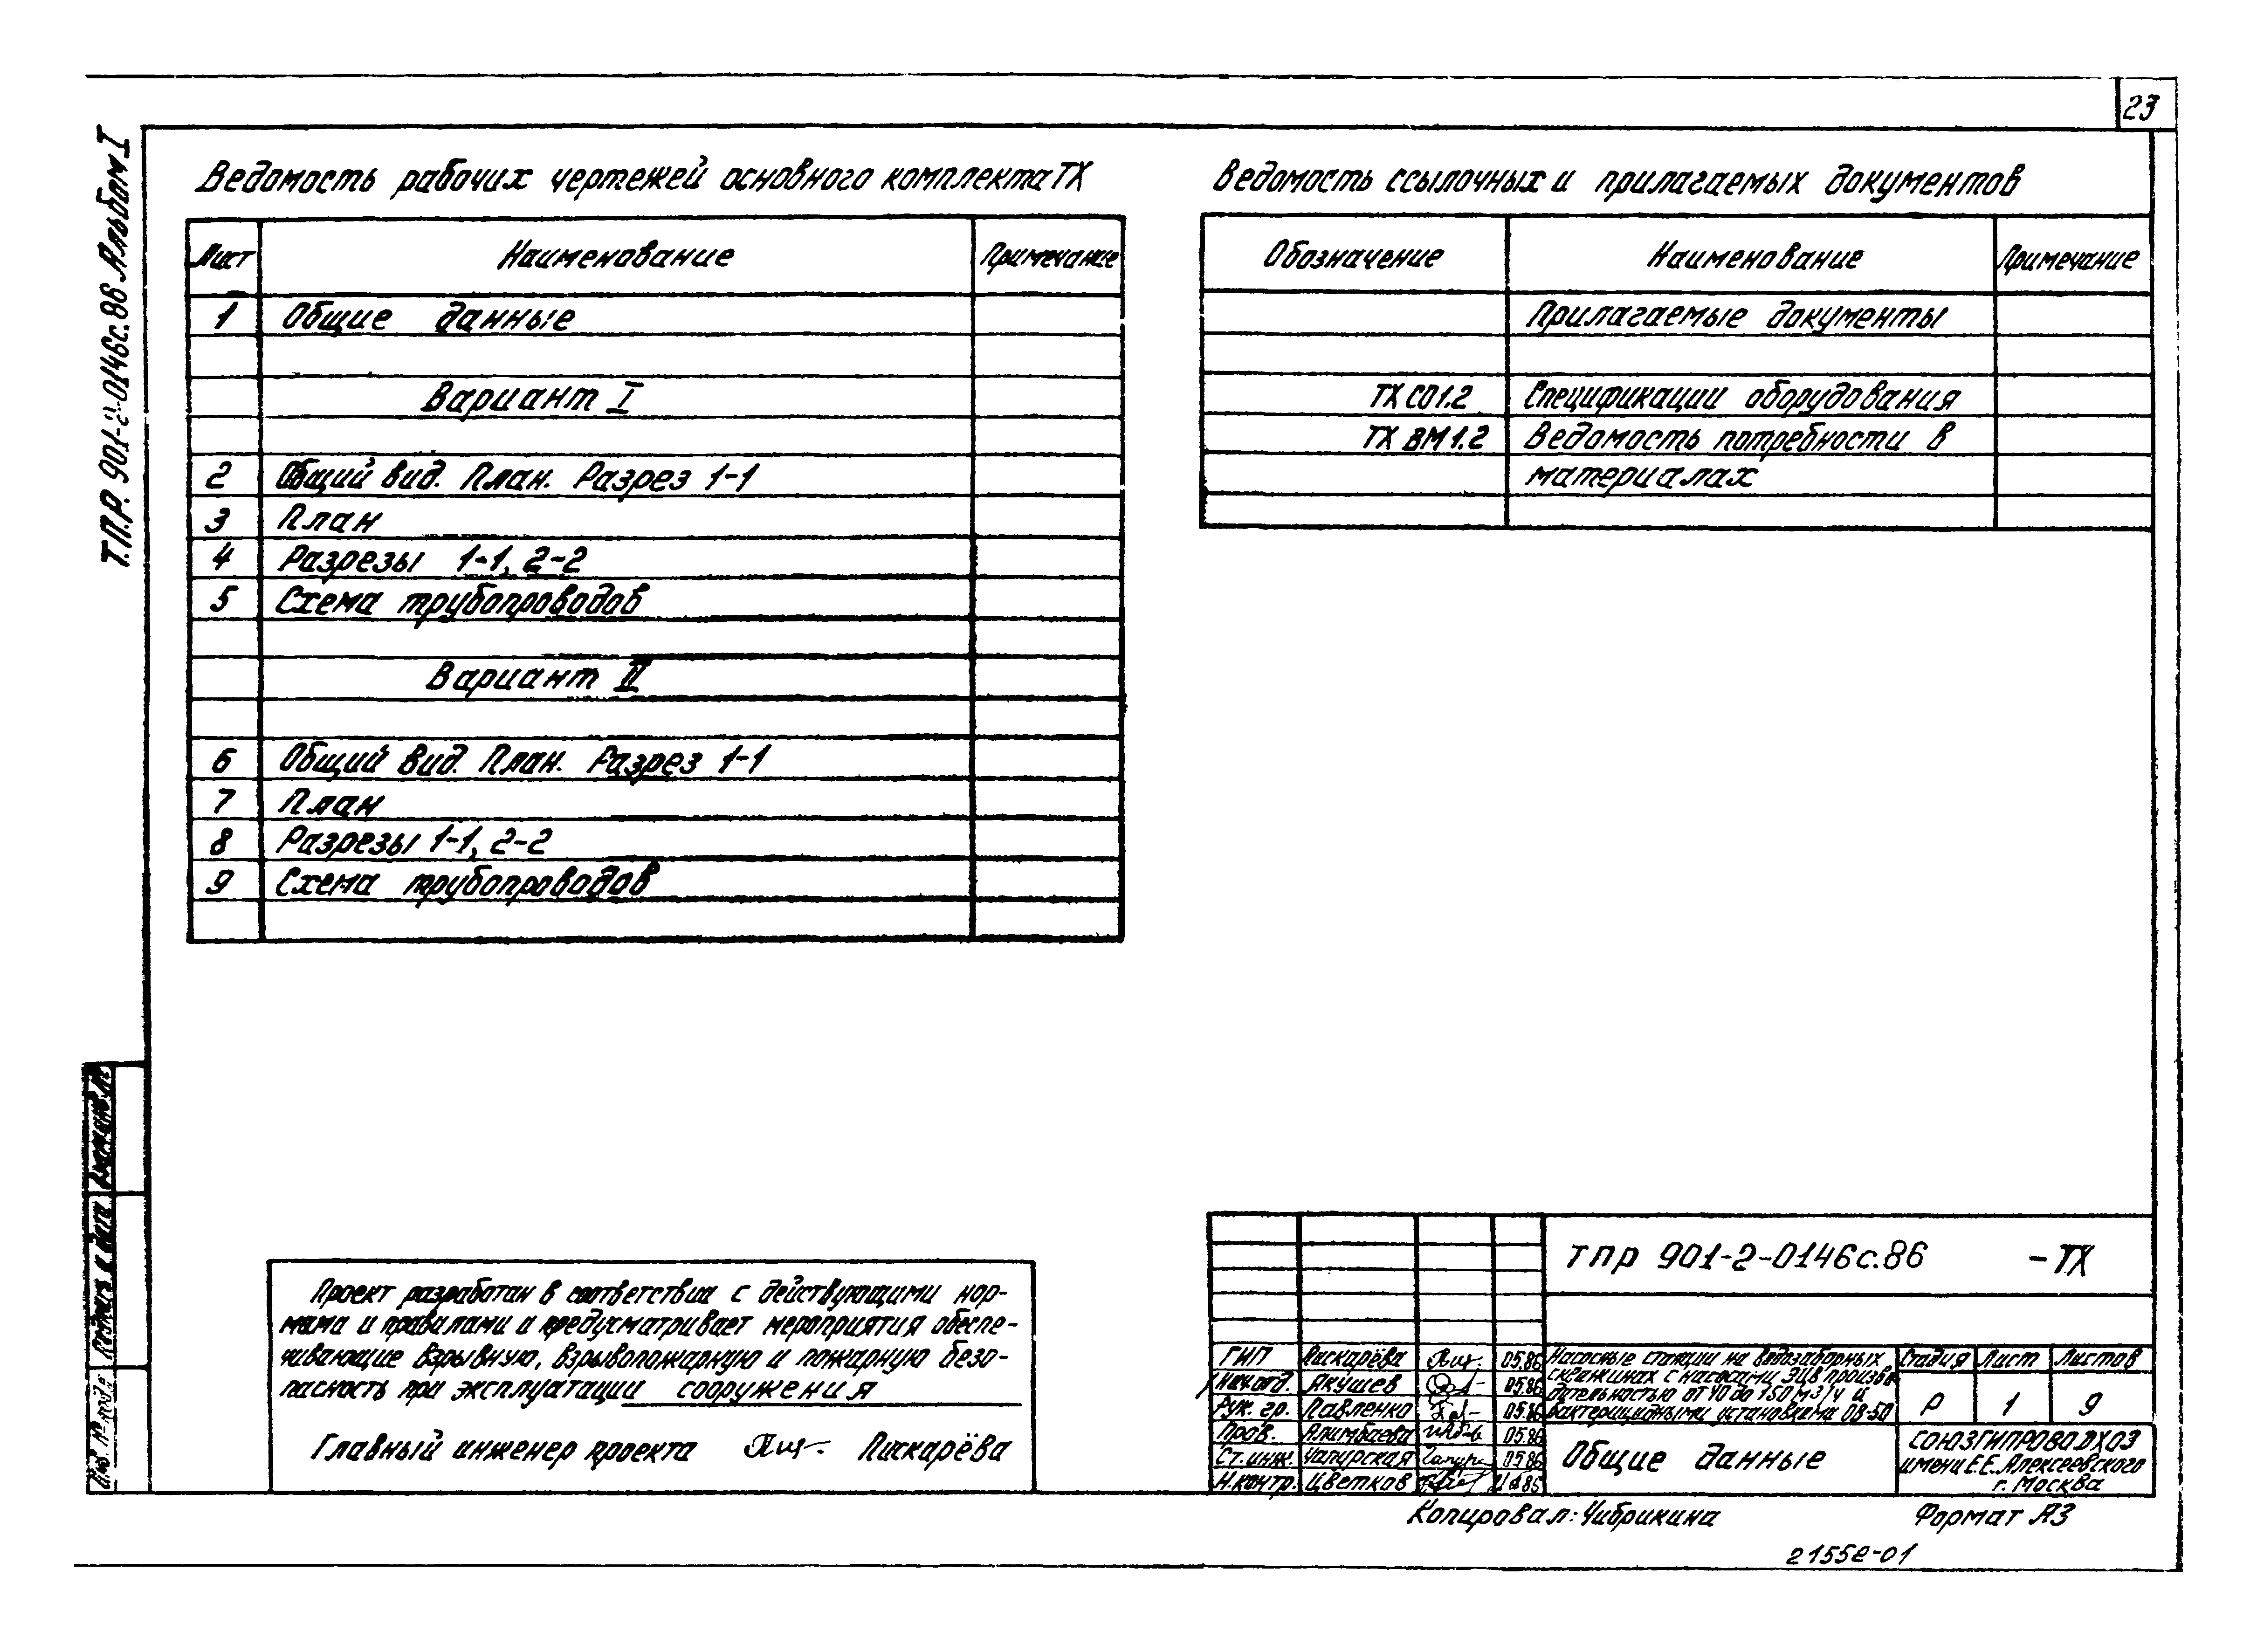 23
Т.П.Р. 901-2-0146с.86 Альбом I
Ведомость рабочих чертежей основного комплекта ТХ
Лист Наименование Примечание
1 Общие данные
Вариант I
2 Общий вид. План. Разрез 1-1
3 План
4 Разрезы 1-1, 2-2
5 Схема трубопроводов
Вариант II
6 Общий вид. План. Разрез 1-1
7 План
8 Разрезы 1-1, 2-2
9 Схема трубопроводов
Ведомость ссылочных и прилагаемых документов
Обозначение Наименование Примечание
Прилагаемые документы
ТХ СО1.2 Спецификации оборудования
ТХ ВМ1.2 Ведомость потребности в
материалах
Взам.инв.№
Подпись и дата
Инв. № подл.
Проект разработан в соответствии с действующими нор-
мами и правилами и предусматривает мероприятия обеспе-
чивающие взрывную, взрывопожарную и пожарную безо-
пасность при эксплуатации сооружения
Главный инженер проекта Пискарёва
ТПР 901-2-0146с.86 -ТХ
ГИП Пискарёва 05.86
Нач.отд. Якушев 05.86
Рук. гр. Павленко 05.86
Пров. Алимбаева 05.86
Ст.инж. Чапурская 05.86
Н.контр. Цветков
Насосные станции на водозаборных
скважинах с насосами ЭЦВ произво-
дительностью от 40 до 150 м3/ч и
бактерицидными установками ОВ-50
Стадия Лист Листов
Р 1 9
Общие данные
СОЮЗГИПРОВОДХОЗ
имени Е.Е. Алексеевского
г. Москва
Копировал: Чибрикина Формат А3
2155е-01